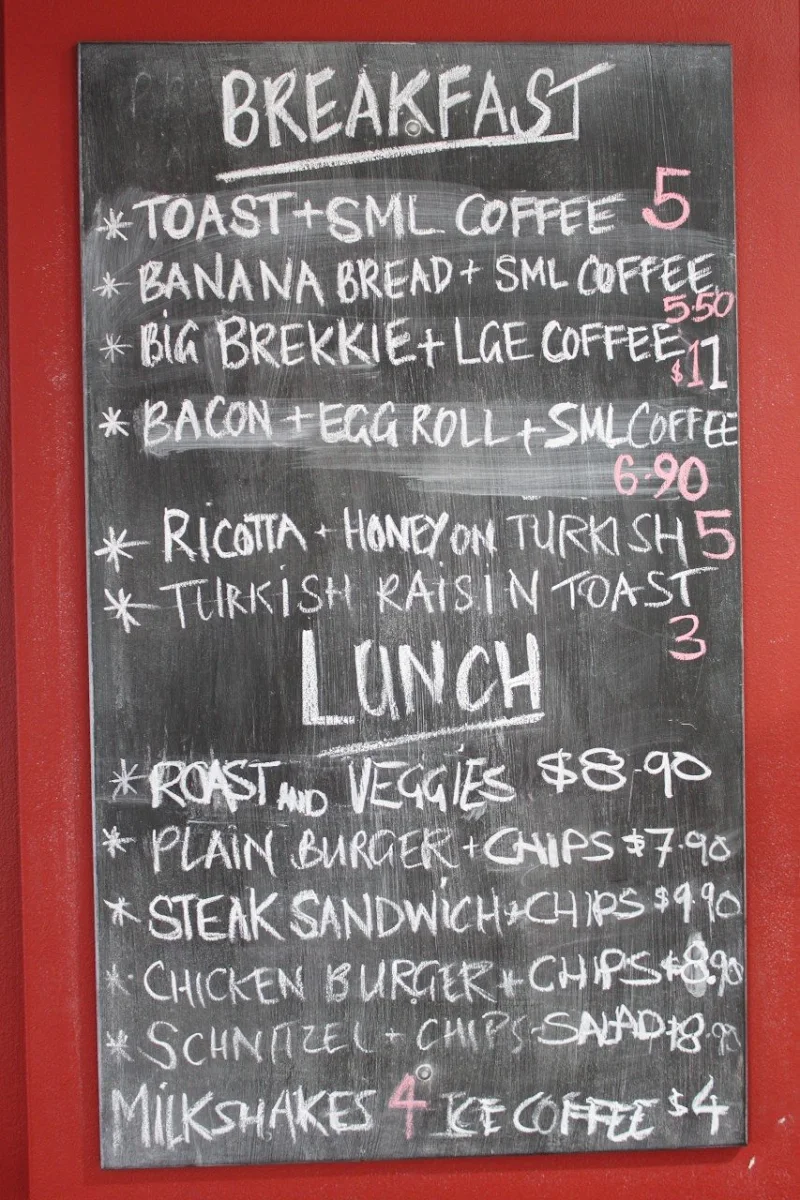 BREAKFAST
* TOAST + SML COFFEE 5
* BANANA BREAD + SML COFFEE
5.50
* BIG BREKKIE + LGE COFFEE
$11
* BACON + EGG ROLL + SML COFFEE
6.90
* RICOTTA + HONEY ON TURKISH 5
* TURKISH RAISIN TOAST
3
LUNCH
* ROAST AND VEGGIES $8.90
* PLAIN BURGER + CHIPS $7.90
* STEAK SANDWICH + CHIPS $9.90
* CHICKEN BURGER + CHIPS $8.90
* SCHNITZEL + CHIPS SALAD $8.90
MILKSHAKES 4 ICE COFFEE $4